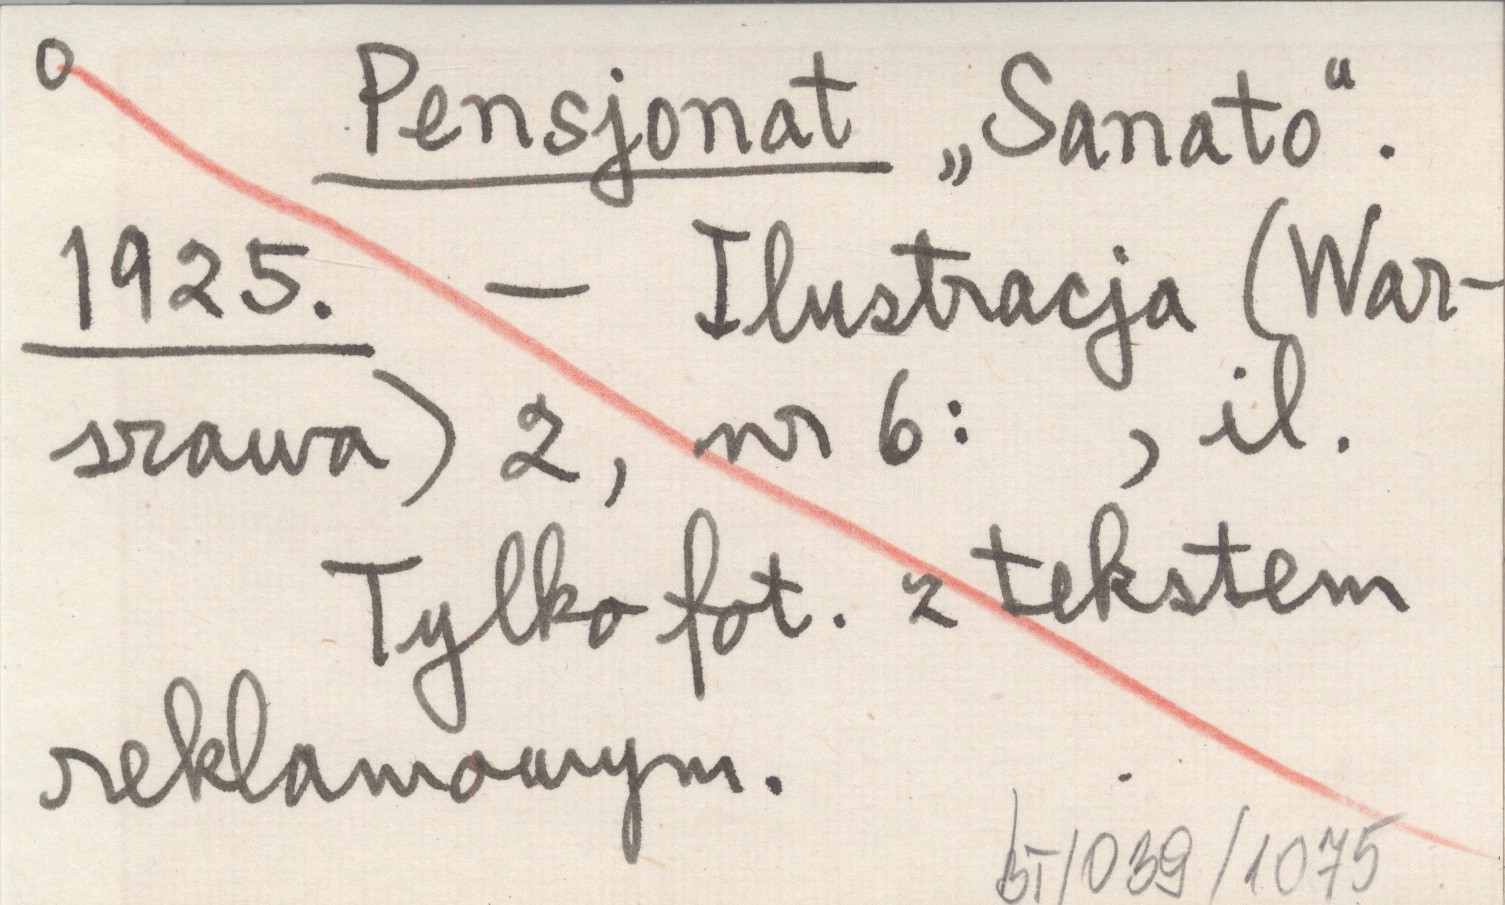 O Pensjonat „Sanato“.
1925. — Ilustracja (War-
szawa) 2, nr 6: , il.
Tylko fot. z tekstem
reklamowym.
BT/039/1075